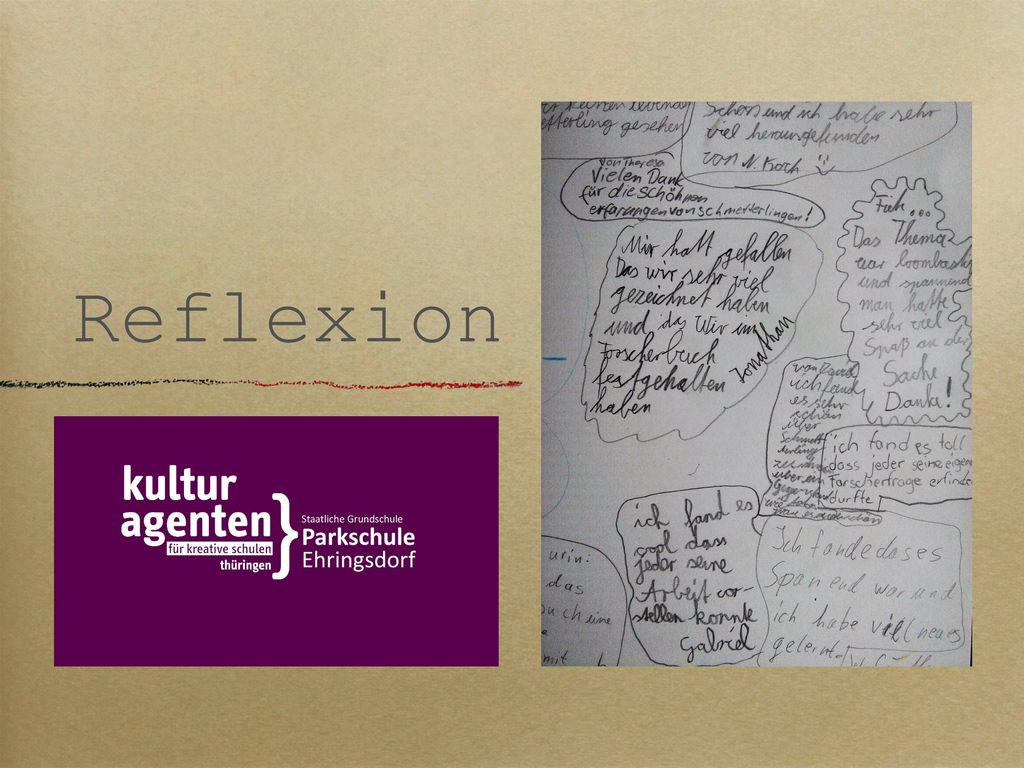 Reflexion
kultur
agenten
für kreative schulen
thüringen
Staatliche Grundschule
Parkschule
Ehringsdorf
gesehen
schön und ich habe sehr
viel herausgefunden
von N. Koch
von Theresa
Vielen Dank
für die schöhnen
erfarungen von schmetterlingen!
Mir hatt gefallen
Das wir sehr viel
gezeichnet haben
und das Wir im
Forscherbuch
festgehalten
haben
Jonathan
Das Thema
war
und spannend
man hatte
sehr viel
Spaß an der
Sache
Danke!
ich fand
es sehr
schön
über
ich fand es toll
dass jeder seine eigene
forscherfrage erfinden
durfte
ich fand es
cool dass
jeder seine
Arbeit vor-
stellen konnte
Gabriel
Ich fande das es
Spanend war und
ich habe viel neues
gelernt
das
mit